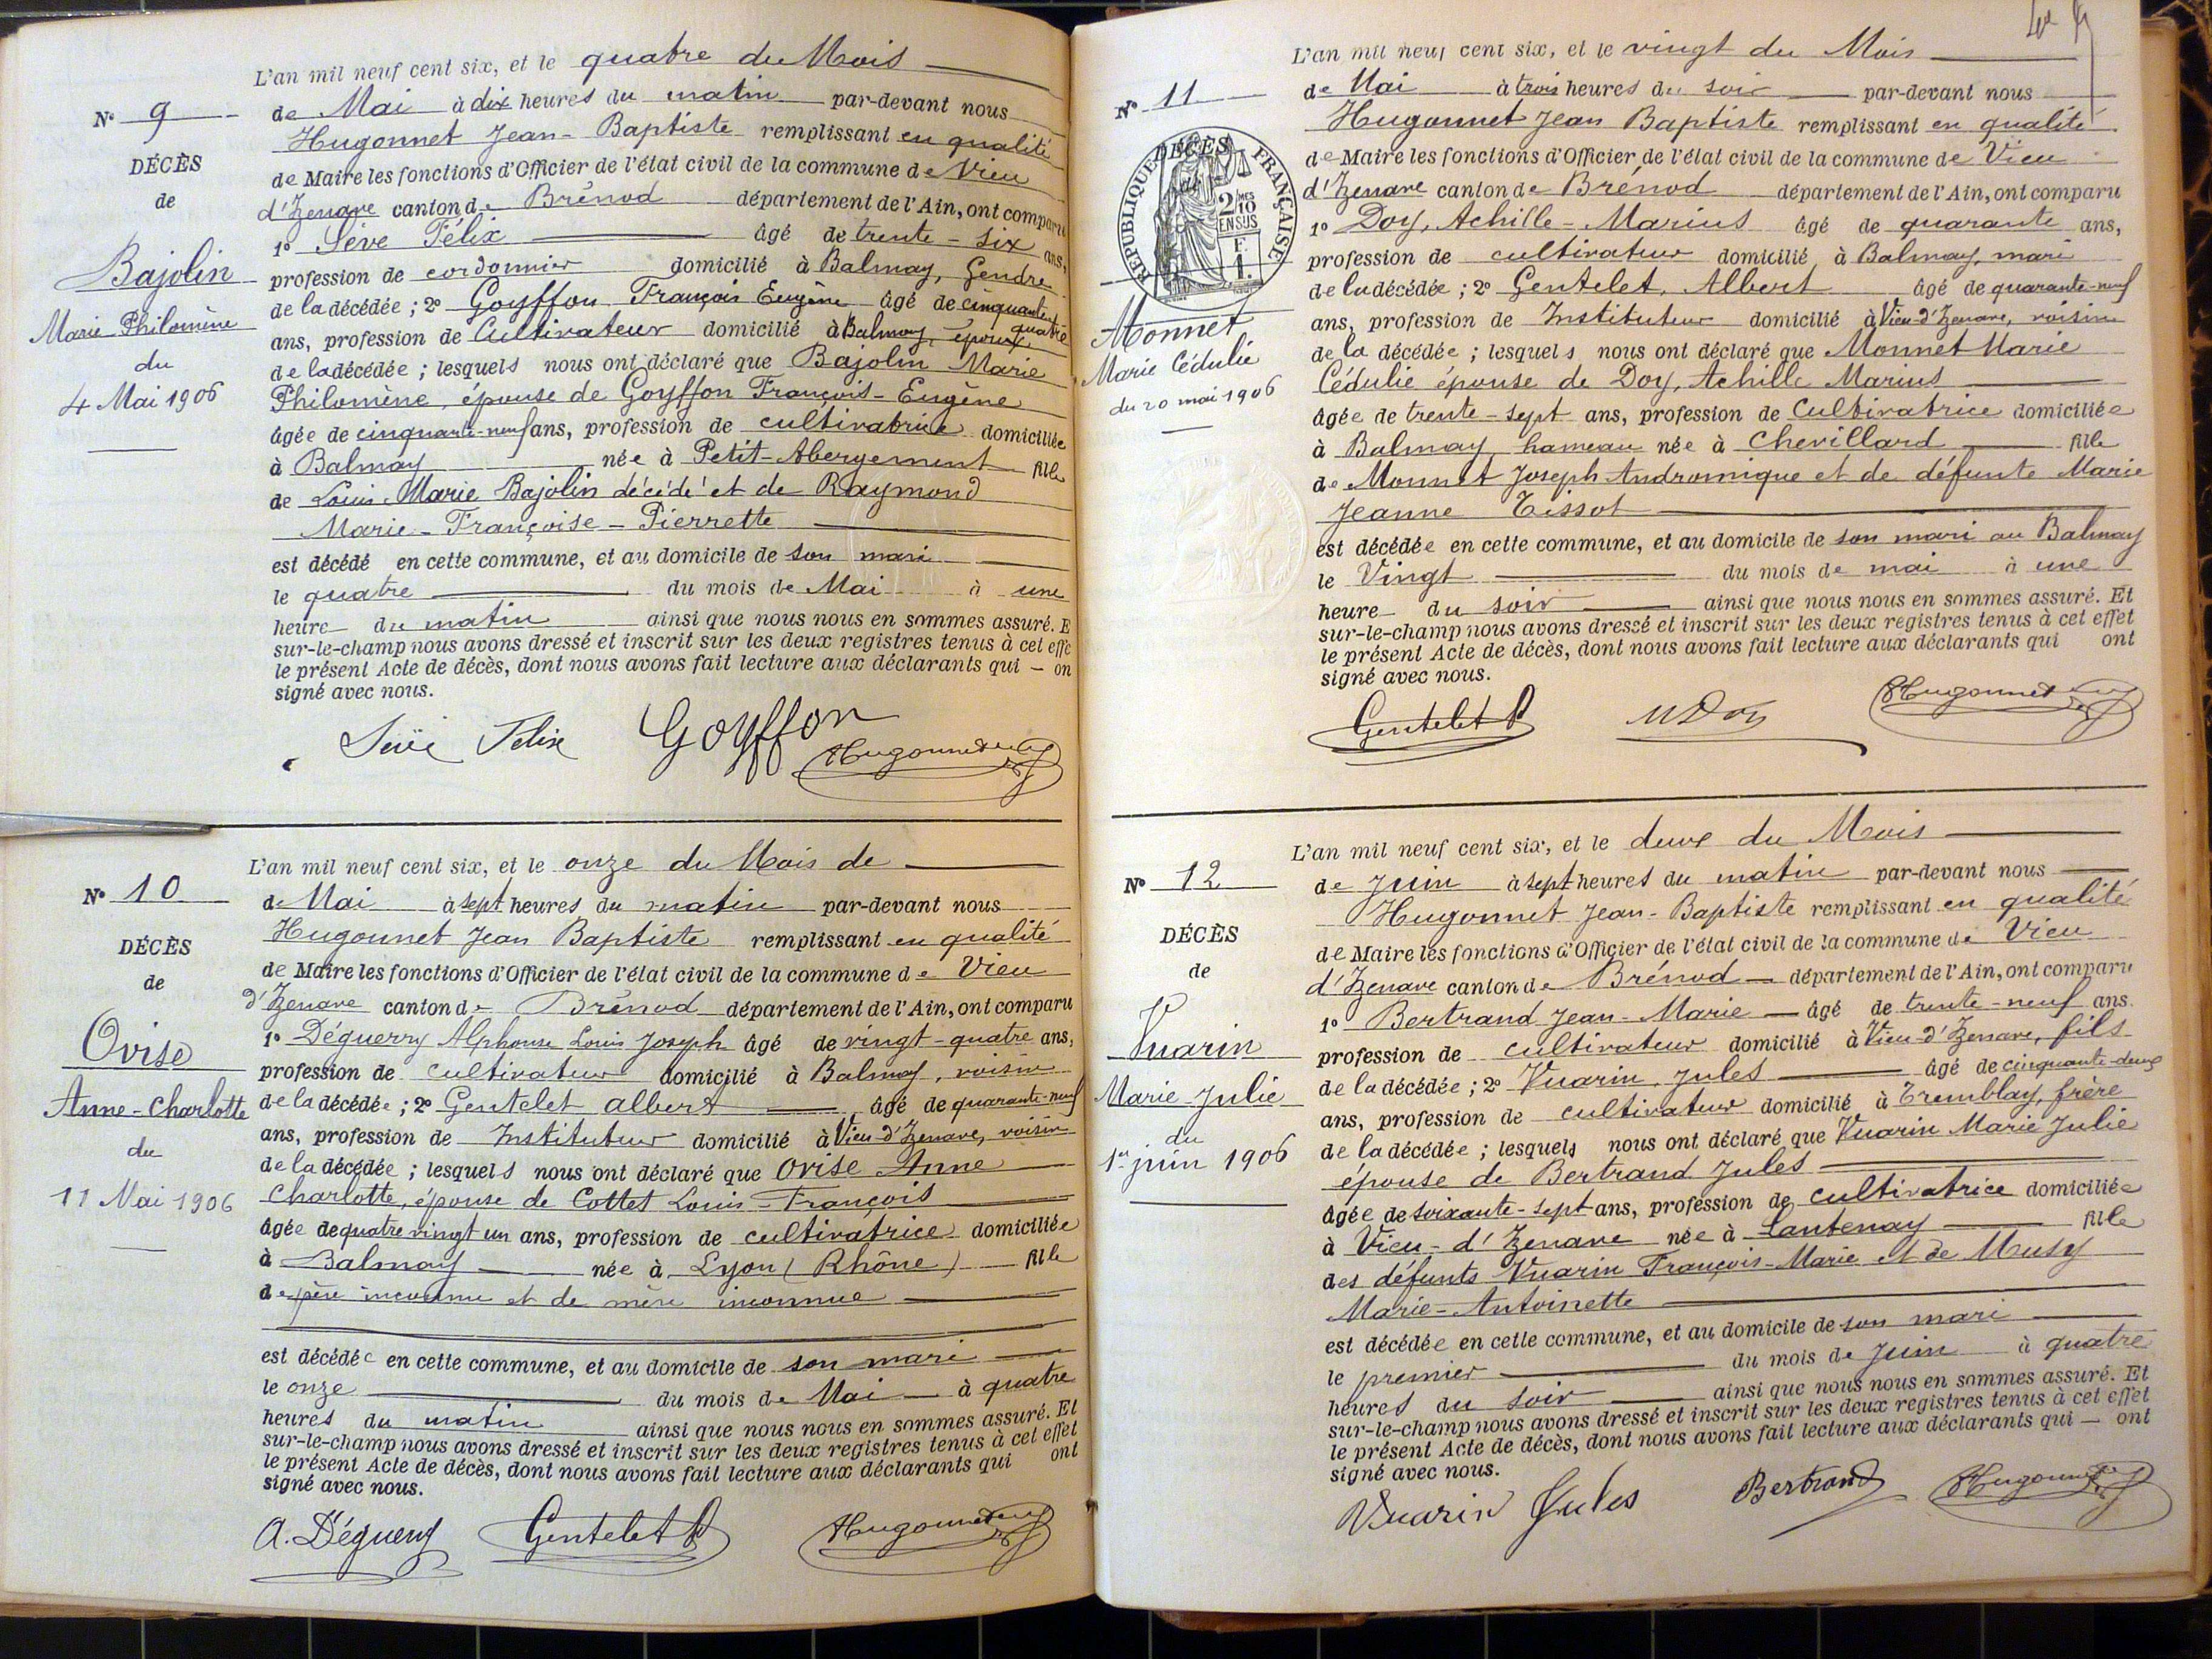 L'an mil neuf cent six, et le quatre du Mois
N° 9
de Mai à dix heures du matin par-devant nous
Hugonnet Jean-Baptiste remplissant en qualité
DÉCÈS
de Maire les fonctions d'Officier de l'état civil de la commune de Vieu
de
d'Izenave canton de Brénod département de l'Ain, ont comparu
1° Sève Félix âgé de trente-six ans,
Bajolin
profession de cordonnier domicilié à Balmay, Gendre
de la décédée ; 2° Goyffon François Eugène âgé de cinquante quatre
Marie Philomène
ans, profession de Cultivateur domicilié à Balmay, époux
du
de la décédée ; lesquels nous ont déclaré que Bajolin Marie
4 Mai 1906
Philomène, épouse de Goyffon François-Eugène
âgée de cinquante-neuf ans, profession de cultivatrice domiciliée
à Balmay née à Petit-Abergement fille
de Louis-Marie Bajolin décédé et de Raymond
Marie-Françoise-Pierrette
est décédé en cette commune, et au domicile de son mari
le quatre du mois de Mai à une
heure du matin ainsi que nous nous en sommes assuré. E
sur-le-champ nous avons dressé et inscrit sur les deux registres tenus à cet effe
le présent Acte de décès, dont nous avons fait lecture aux déclarants qui — on
signé avec nous.
Sève Félix Goyffon Hugonnet
L'an mil neuf cent six, et le onze du Mois de
N° 10
de Mai à sept heures du matin par-devant nous
Hugonnet Jean Baptiste remplissant en qualité
DÉCÈS
de Maire les fonctions d'Officier de l'état civil de la commune de Vieu
de
d'Izenave canton de Brénod département de l'Ain, ont comparu
1° Déguerry Alphonse Louis Joseph âgé de vingt-quatre ans,
Ovise
profession de cultivateur domicilié à Balmay, voisin
Anne-Charlotte
de la décédée ; 2° Gentelet albert âgé de quarante-neuf
ans, profession de Instituteur domicilié à Vieu-d'Izenave, voisin
du
de la décédée ; lesquels nous ont déclaré que Ovise Anne
11 Mai 1906
Charlotte, épouse de Cottet Louis-François
âgée de quatre vingt un ans, profession de cultivatrice domiciliée
à Balmay née à Lyon (Rhône) fille
de père inconnu et de mère inconnue
est décédée en cette commune, et au domicile de son mari
le onze du mois de Mai à quatre
heures du matin ainsi que nous nous en sommes assuré. Et
sur-le-champ nous avons dressé et inscrit sur les deux registres tenus à cet effet
le présent Acte de décès, dont nous avons fait lecture aux déclarants qui ont
signé avec nous.
A. Déguerry Gentelet A Hugonnet
L'an mil neuf cent six, et le vingt du Mois
N° 11
de Mai à trois heures du soir par-devant nous
Hugonnet Jean Baptiste remplissant en qualité
DÉCÈS
de Maire les fonctions d'Officier de l'état civil de la commune de Vieu
de
RÉPUBLIQUE FRANÇAISE
2/10 MES
EN SUS
F.
1.
d'Izenave canton de Brénod département de l'Ain, ont comparu
1° Doy, Achille-Marius âgé de quarante ans,
profession de cultivateur domicilié à Balmay, mari
de la décédée ; 2° Gentelet, Albert âgé de quarante-neuf
Monnet
ans, profession de Instituteur domicilié à Vieu-d'Izenave, voisin
Marie Cédulie
de la décédée ; lesquels nous ont déclaré que Monnet Marie
du 20 mai 1906
Cédulie épouse de Doy, Achille Marius
âgée de trente-sept ans, profession de Cultivatrice domiciliée
à Balmay, hameau née à Chevillard fille
de Monnet Joseph Andromique et de défunte Marie
Jeanne Tissot
est décédée en cette commune, et au domicile de son mari au Balmay
le Vingt du mois de mai à une
heure du soir ainsi que nous nous en sommes assuré. Et
sur-le-champ nous avons dressé et inscrit sur les deux registres tenus à cet effet
le présent Acte de décès, dont nous avons fait lecture aux déclarants qui ont
signé avec nous.
Gentelet A M Doy Hugonnet
L'an mil neuf cent six, et le deux du Mois
N° 12
de Juin à sept heures du matin par-devant nous
Hugonnet Jean-Baptiste remplissant en qualité
DÉCÈS
de Maire les fonctions d'Officier de l'état civil de la commune de Vieu
de
d'Izenave canton de Brénod département de l'Ain, ont comparu
1° Bertrand Jean-Marie âgé de trente-neuf ans
Vuarin
profession de cultivateur domicilié à Vieu-d'Izenave, fils
de la décédée ; 2° Vuarin Jules âgé de cinquante-deux
Marie-Julie
ans, profession de cultivateur domicilié à Tremblay, frère
du
de la décédée ; lesquels nous ont déclaré que Vuarin Marie Julie
1er juin 1906
épouse de Bertrand Jules
âgée de soixante-sept ans, profession de cultivatrice domiciliée
à Vieu-d'Izenave née à Lantenay fille
des défunts Vuarin François-Marie et de Musy
Marie-Antoinette
est décédée en cette commune, et au domicile de son mari
le premier du mois de Juin à quatre
heures du soir ainsi que nous nous en sommes assuré. Et
sur-le-champ nous avons dressé et inscrit sur les deux registres tenus à cet effet
le présent Acte de décès, dont nous avons fait lecture aux déclarants qui — ont
signé avec nous.
Vuarin Jules Bertrand Hugonnet